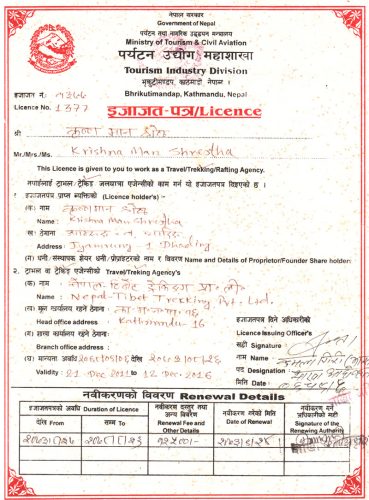 नेपाल सरकार
Government of Nepal
पर्यटन तथा नागरिक उड्डयन मन्त्रालय
Ministry of Tourism & Civil Aviation
पर्यटन उद्योग महाशाखा
Tourism Industry Division
भृकुटीमण्डप, काठमाडौं नेपाल
Bhrikutimandap, Kathmandu, Nepal.
इजाजत नं.: १३७७
Licence No. 1377
इजाजत-पत्र/Licence
श्री कृष्ण मान श्रेष्ठ
Mr./Mrs./Ms. Krishna Man Shrestha
This Licence is given to you to work as a Travel/Trekking/Rafting Agency.
तपाईलाई ट्राभल ट्रेकिङ्ग जलयात्रा एजेन्सीको काम गर्न यो इजाजतपत्र दिइएको छ ।
१ इजाजतपत्र प्राप्त ब्यक्तिको (Licence holder's) :-
(क) नाम : कृष्ण मान श्रेष्ठ
Name : Krishna Man Shrestha
(ख) ठेगाना :
Address : 1 Dhading
(ग) धनी/संस्थापक शेयर धनी/प्रोप्राइटरको नाम र विवरण Name and Details of Proprietor/Founder Share holder:
२ ट्राभल वा ट्रेकिङ्ग एजेन्सीको Travel/Treking Agency's
(क) नाम : नेपाल तिबेट ट्रेकिङ्ग प्रा. लि.
Name : Nepal-Tibet Trekking Pvt. Ltd.
(ख) मूल कार्यालय रहने ठेगाना :
Head office address : Kathmandu-16
(ग) शाखा कार्यालय रहने ठेगाना :
Branch office address :
(घ) मान्यता अवधि
Validity : 21-Dec 2011 12-Dec-2016
इजाजतपत्र दिने अधिकारीको
Licence Issuing Officer's
सही Signature
नाम Name
पद Designation
मिति Date
नवीकरणको विवरण Renewal Details
इजाजतपत्रको अवधि Duration of Licence
देखि From
सम्म To
नवीकरण दस्तुर तथा अन्य विवरण Renewal Fee and Other Details
नवीकरण गरेको मिति Date of Renewal
नवीकरण गर्ने अधिकारीको सही Signature of the Renewing Authority